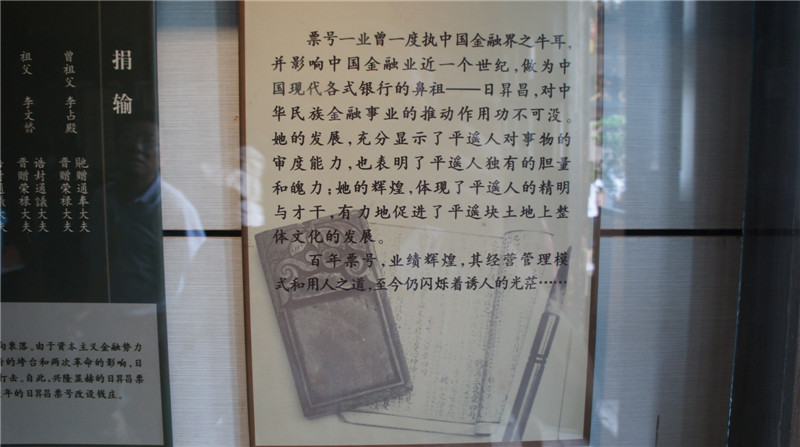 捐输
曾祖父 李占殿 驰赠通奉大夫 晋赠荣禄大夫
祖父 李文 诰封通議大夫 晋赠荣禄大夫
向衰落。由于資本主义金融势力
的垮台和两次革命的影响,日
打击。自此,兴隆显赫的日昇昌票
年的日昇昌票号改设钱庄。
票号一业曾一度执中国金融界之牛耳,
并影响中国金融业近一个世纪,做为中
国现代各式银行的鼻祖——日昇昌,对中
华民族金融事业的推动作用功不可没。
她的发展,充分显示了平遥人对事物的
审度能力,也表明了平遥人独有的胆量
和魄力;她的辉煌,体现了平遥人的精明
与才干,有力地促进了平遥块土地上整
体文化的发展。
百年票号,业绩辉煌,其经营管理模
式和用人之道,至今仍闪烁着诱人的光茫……